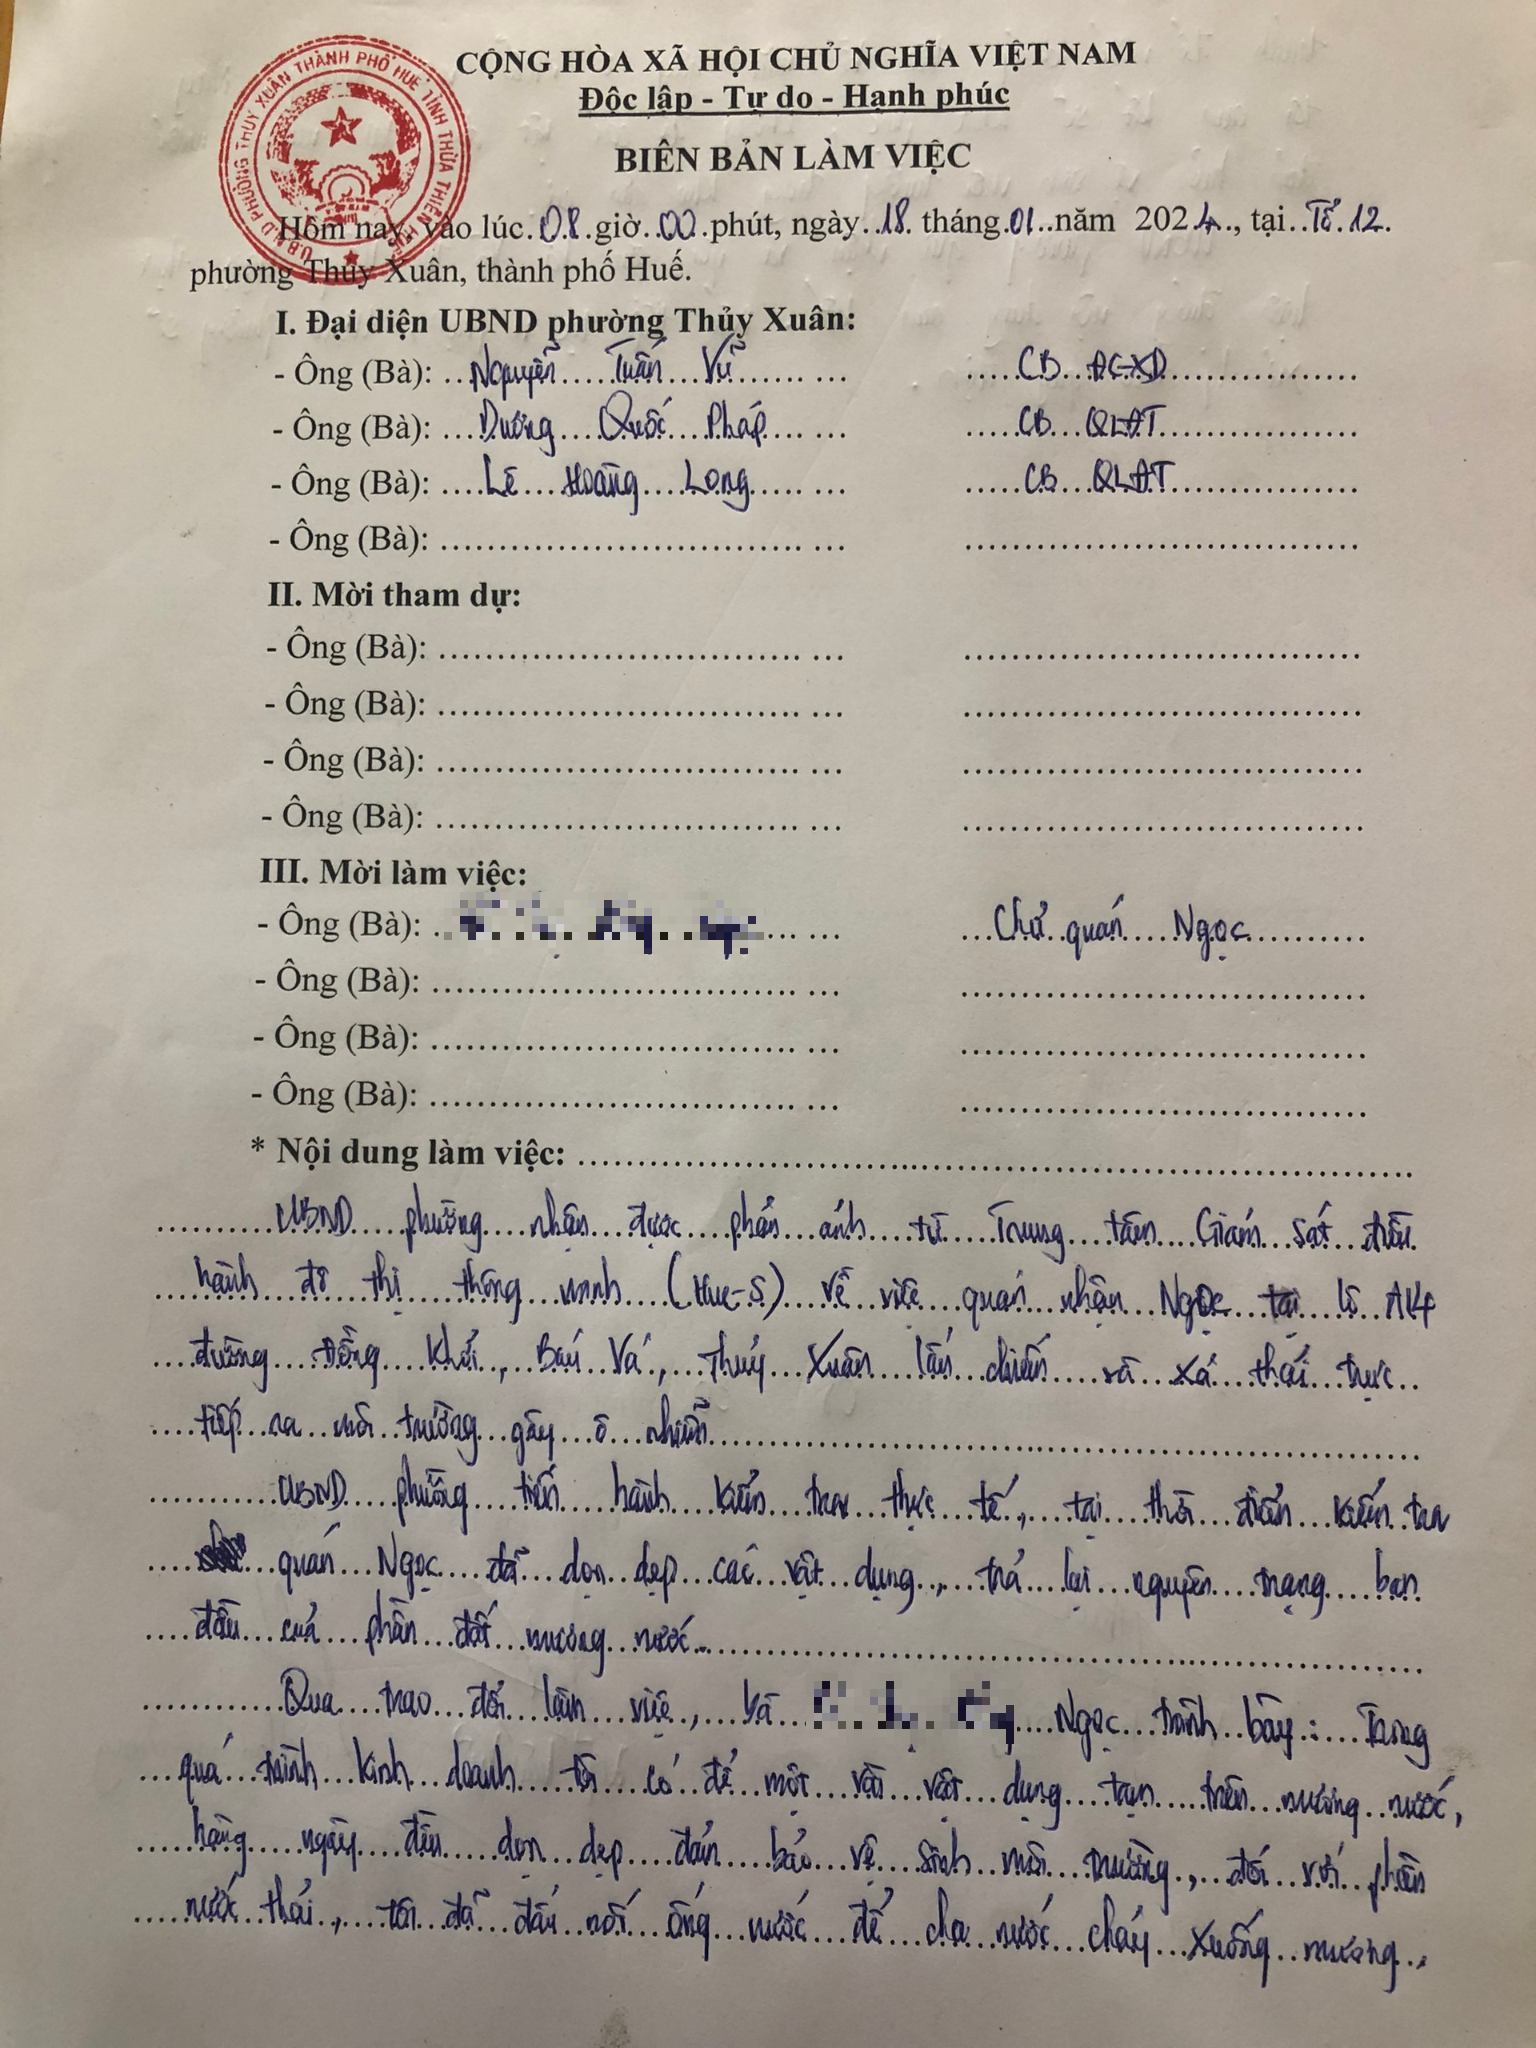 CỘNG HÒA XÃ HỘI CHỦ NGHĨA VIỆT NAM
Độc lập - Tự do - Hạnh phúc
BIÊN BẢN LÀM VIỆC
U.B.N.D PHƯỜNG THỦY XUÂN THÀNH PHỐ HUẾ TỈNH THỪA THIÊN HUẾ
Hôm nay, vào lúc 08 giờ 00 phút, ngày 18 tháng 01 năm 2024, tại Tổ 12
phường Thủy Xuân, thành phố Huế.
I. Đại diện UBND phường Thủy Xuân:
- Ông (Bà): Nguyễn Tuấn Vũ CB ĐC-XD
- Ông (Bà): Dương Quốc Pháp CB QLĐT
- Ông (Bà): Lê Hoàng Long CB QLĐT
- Ông (Bà):
II. Mời tham dự:
- Ông (Bà):
- Ông (Bà):
- Ông (Bà):
- Ông (Bà):
III. Mời làm việc:
- Ông (Bà): Chủ quán Ngọc
- Ông (Bà):
- Ông (Bà):
- Ông (Bà):
* Nội dung làm việc:
UBND phường nhận được phản ánh từ Trung tâm Giám sát điều
hành đô thị thông minh (Hue-S) về việc quán nhậu Ngọc tại lô A14
đường Đồng Khởi, Bàu Vá, Thủy Xuân lấn chiếm và xả thải trực
tiếp ra môi trường gây ô nhiễm
UBND phường tiến hành kiểm tra thực tế, tại thời điểm kiểm tra
quán Ngọc đã dọn dẹp các vật dụng, trả lại nguyên trạng ban
đầu của phần đất mương nước.
Qua trao đổi làm việc, bà Ngọc trình bày: Trong
quá trình kinh doanh tôi có để một vài vật dụng tạm trên mương nước,
hàng ngày đều dọn dẹp đảm bảo vệ sinh môi trường, đối với phần
nước thải, tôi đã đấu nối ống nước để cho nước chảy xuống mương,